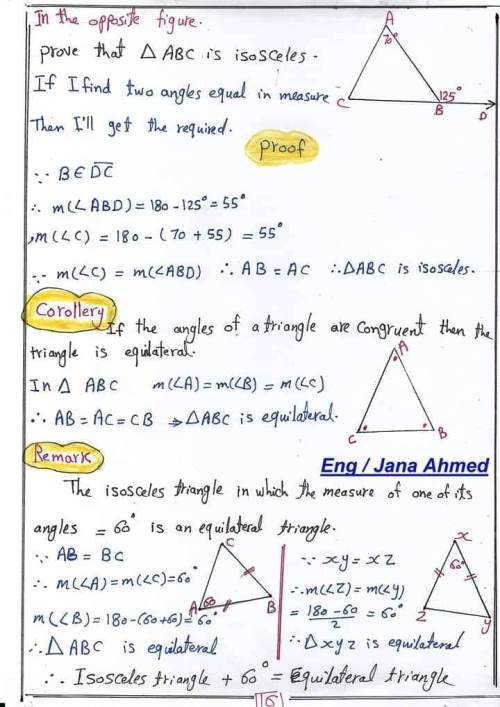 In the opposite figure.
prove that △ ABC is isosceles.
If I find two angles equal in measure
Then I'll get the required.
A
70°
C
125°
B
D
proof
∵ B ∈ DC
∴ m(∠ABD) = 180 - 125° = 55°
, m(∠C) = 180 - (70 + 55) = 55°
∵ m(∠C) = m(∠ABD) ∴ AB = AC ∴ △ABC is isosceles.
Corollery
If the angles of a triangle are congruent then the
triangle is equilateral.
In △ ABC m(∠A) = m(∠B) = m(∠C)
∴ AB = AC = CB ⇒ △ABC is equilateral.
A
C
B
Remark
Eng / Jana Ahmed
The isosceles triangle in which the measure of one of its
angles = 60° is an equilateral triangle.
∵ AB = BC
∴ m(∠A) = m(∠C) = 60°
m(∠B) = 180 - (60+60) = 60°
∴ △ ABC is equilateral
C
A
60
B
∵ xy = xz
∴ m(∠Z) = m(∠y)
= 180 - 60 / 2 = 60°
∴ △xyz is equilateral
x
60°
Z
y
∴ Isosceles triangle + 60° = Equilateral triangle
16